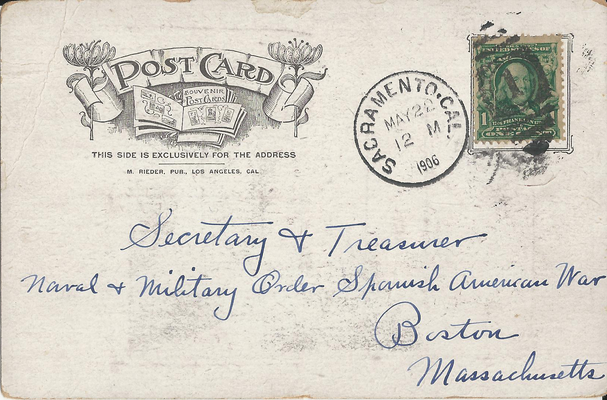 POST CARD
SOUVENIR
POST CARDS
THIS SIDE IS EXCLUSIVELY FOR THE ADDRESS
M. RIEDER, PUB., LOS ANGELES, CAL.
SACRAMENTO. CAL.
MAY 22
12 M
1906
Secretary & Treasurer
Naval & Military Order Spanish American War
Boston
Massachusetts